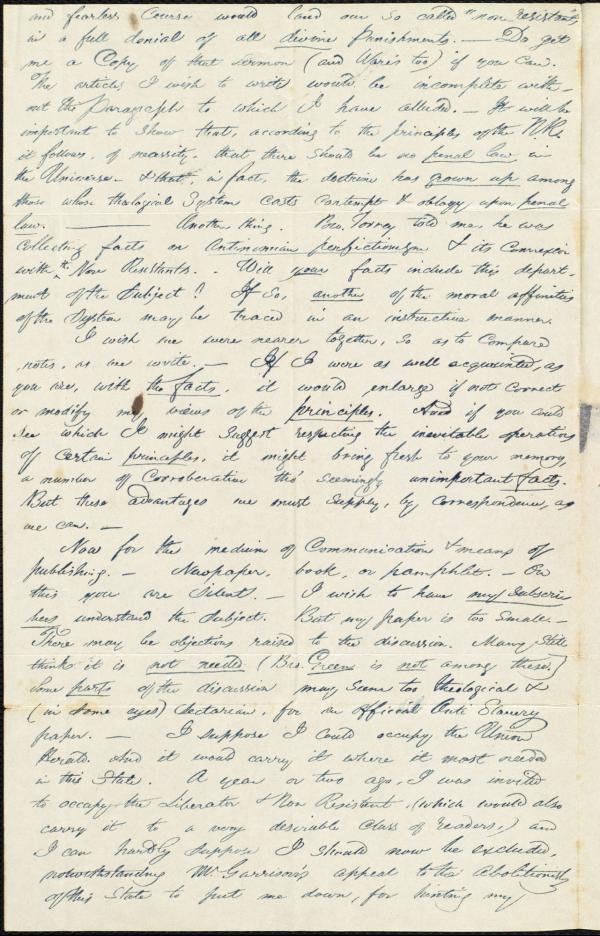 and fearless course would land our so called "non resistants"
in a full denial of all divine Punishments. — Do get
me a Copy of that Sermon (and Ware's too) if you can.
The article I wish to write would be incomplete with-
out the Paragraph to which I have alluded. — It will be
important to show that, according to the principles of the N.Rs.
it follows, of necessity, that there should be no penal law, in
the Universe — & that, in fact, the doctrine has grown up among
those whose theological System casts contempt & obloquy upon penal
law. ——— Another thing. Bro. Torrey told me, he was
collecting facts on Antinomian perfectionism & its Connexion
with the Non Resistants. . Will your facts include this depart-
ment of the Subject? If So, another of the moral affinities
of the System may be traced in an instructive manner.
I wish we were nearer together, So as to Compare
notes, as we write. — If I were as well acquainted, as
you are, with the facts, it would enlarge if not correct
or modify my views of the principles. And if you could
see which I might Suggest respecting the inevitable operations
of Certain principles, it might bring fresh to your memory,
a number of Corroberative tho' seemingly unimportant facts.
But these advantages we must Supply, by Correspondence, as
we can. —
Now for the medium of Communication & means of
publishing. — Newspaper, book, or pamphlet. — On
this you are Silent. — I wish to have my Subscri
bers understand the Subject. But my paper is too Small. —
There may be objections raised to the discussion. Many Still
think it is not needed (Bro. Green is not among these.)
Some parts of the discussion may Seem too theological &
(in Some eyes) Sectarian, for an Official Anti Slavery
paper. — I suppose I could occupy the Union
Herald. And it would carry it where it most needed
in this State. A year or two ago, I was invited
to occupy the Liberator & Non Resistant, (which would also
carry it to a very desirable Class of readers,) and
I can hardly Suppose I Should now be excluded,
notwithstanding Mr. Garrison's appeal to the Abolitionists
of this State to put me down, for hinting my